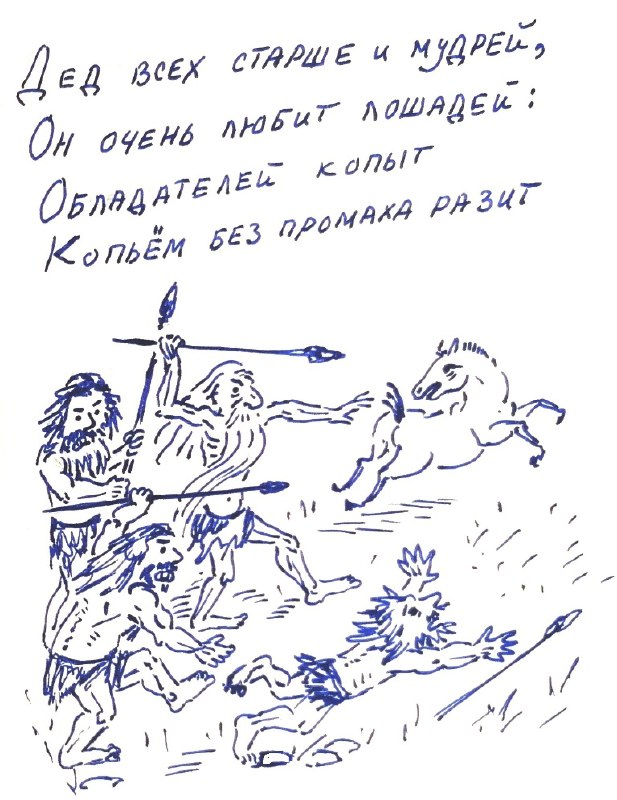 Дед всех старше и мудрей,
Он очень любит лошадей:
Обладателей копыт
Копьём без промаха разит